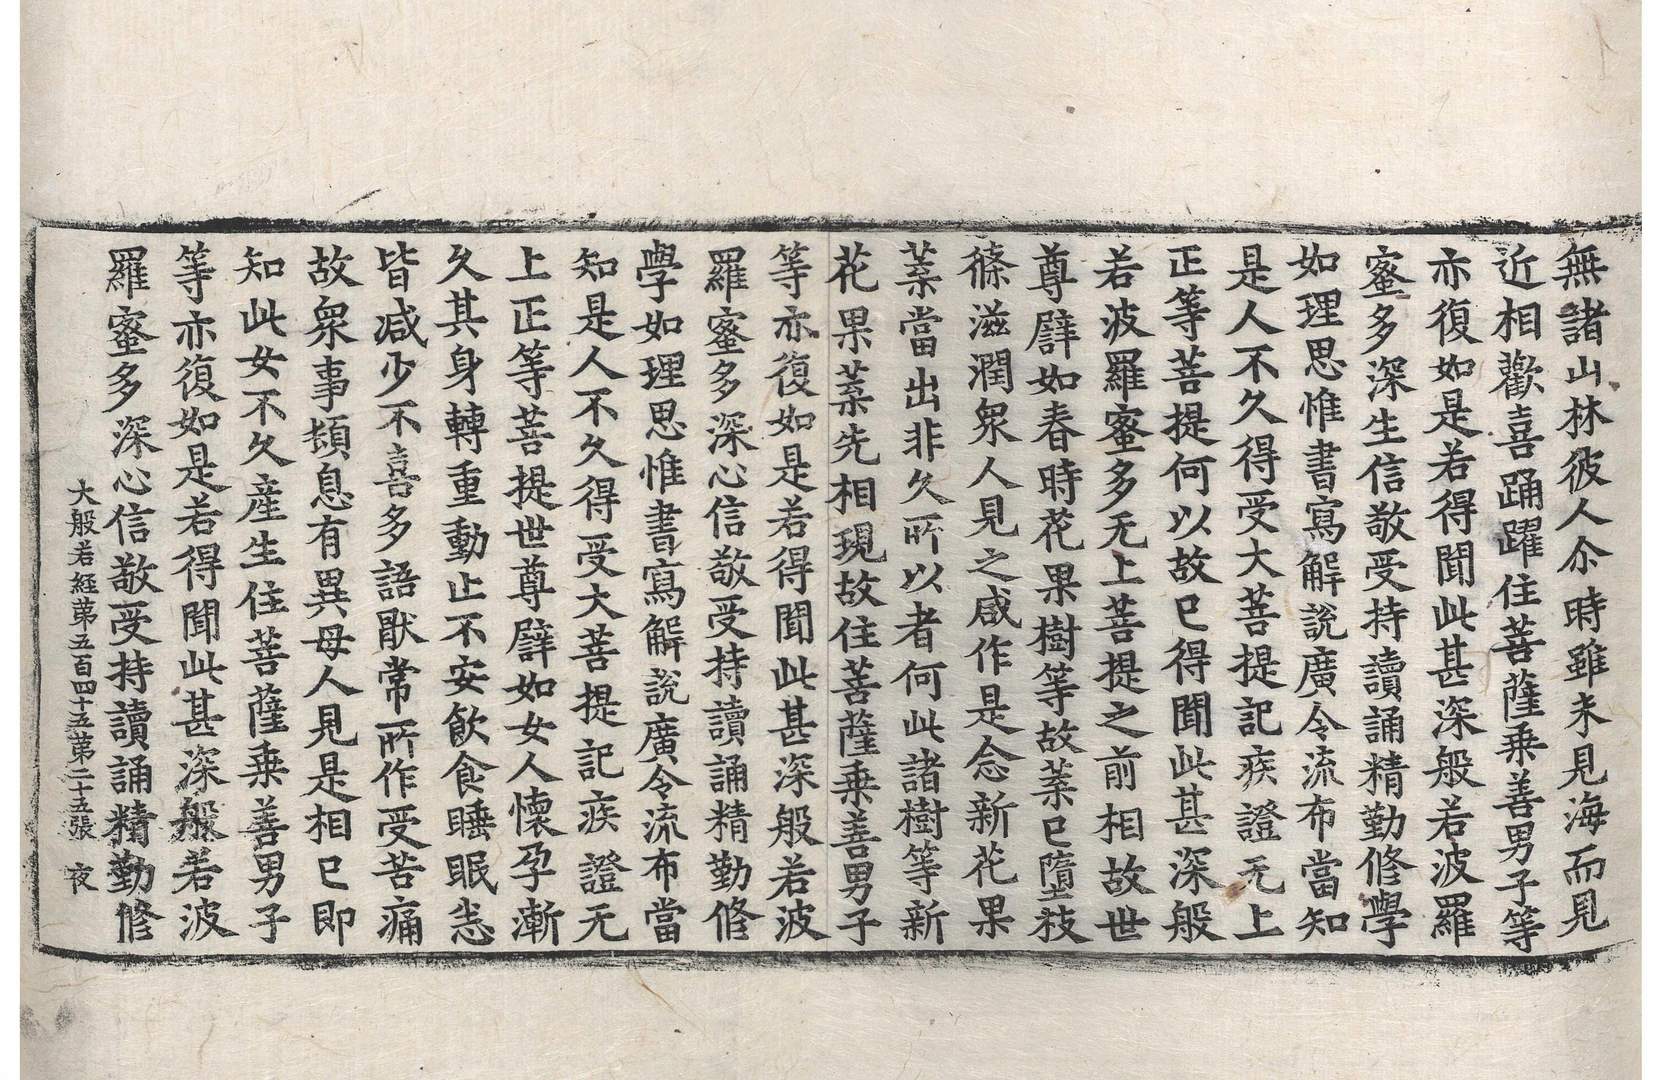 無諸山林彼人尒時雖未見海而見
近相歡喜踊躍住菩薩乗善男子等
亦復如是若得聞此甚深般若波羅
蜜多深生信敬受持讀誦精勤修學
如理思惟書寫解說廣令流布當知
是人不久得受大菩提記疾證无上
正等菩提何以故已得聞此甚深般
若波羅蜜多无上菩提之前相故世
尊譬如春時花果樹等故葉已墮枝
條滋潤衆人見之咸作是念新花果
葉當出非久所以者何此諸樹等新
花果葉先相現故住菩薩乗善男子
等亦復如是若得聞此甚深般若波
羅蜜多深心信敬受持讀誦精勤修
學如理思惟書寫解說廣令流布當
知是人不久得受大菩提記疾證无
上正等菩提世尊譬如女人懷孕漸
久其身轉重動止不安飲食睡眠悉
皆減少不喜多語猒常所作受苦痛
故衆事頓息有異母人見是相已即
知此女不久産生住菩薩乗善男子
等亦復如是若得聞此甚深般若波
羅蜜多深心信敬受持讀誦精勤修
大般若經苐五百四十五苐二十五張　夜